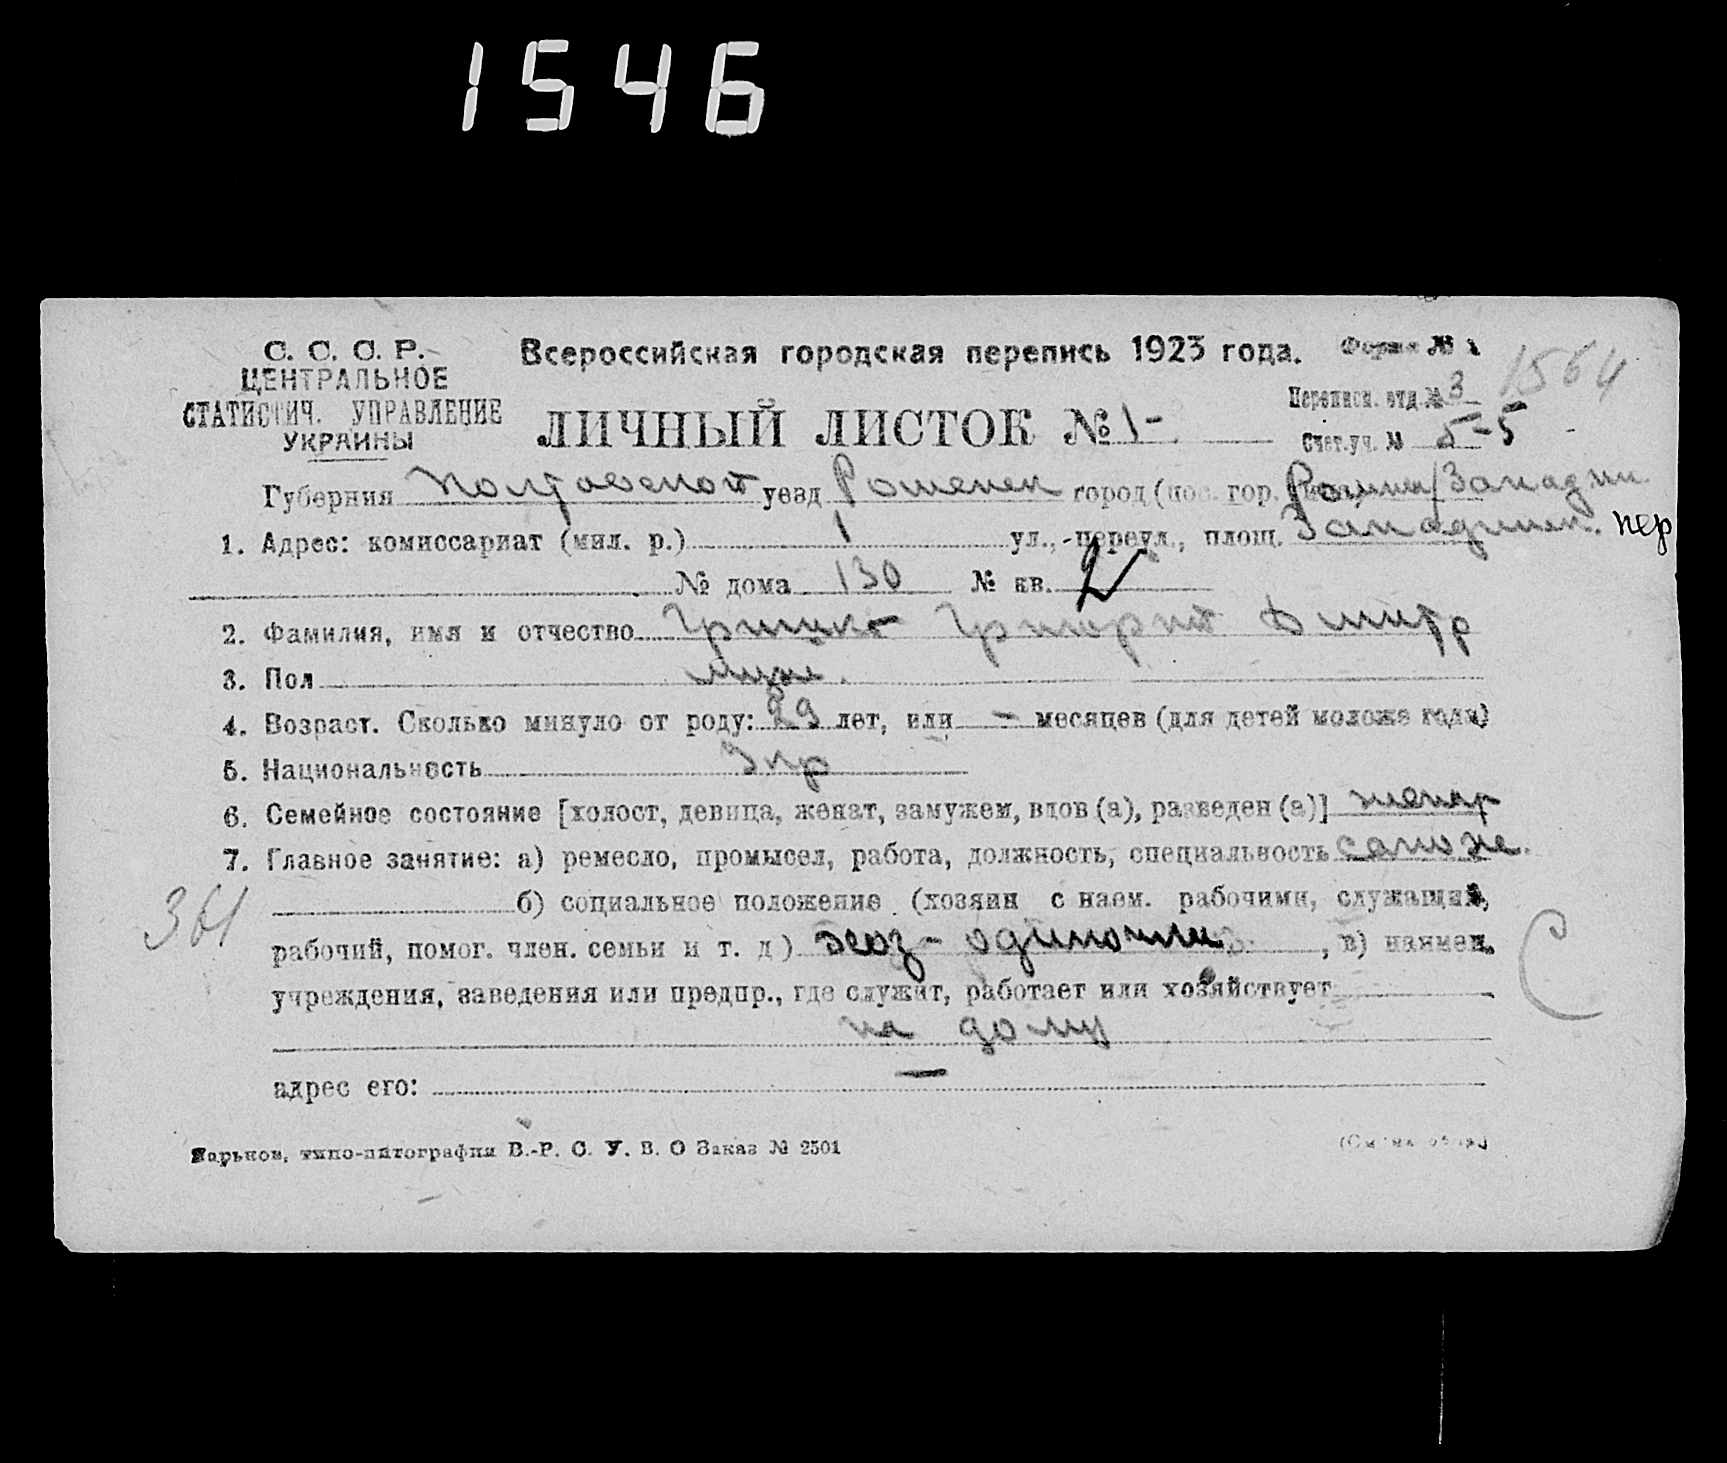 1546
С. С. С. Р.
ЦЕНТРАЛЬНОЕ
СТАТИСТИЧ. УПРАВЛЕНИЕ
УКРАИНЫ
Всероссийская городская перепись 1923 года.
Форма № 1
1564
ЛИЧНЫЙ ЛИСТОК № 1-
Переписн. отд. № 3
Счет. уч. № 5-5
Губерния Полтавской уезд Роменск город (пос. гор.
1. Адрес: комиссариат (мил. р.) 1 ул., переул., площ. Западинск. пер
№ дома 130 № кв. 2
2. Фамилия, имя и отчество Грицко Григорий Дмитр
3. Пол муж.
4. Возраст. Сколько минуло от роду: 29 лет, или - месяцев (для детей моложе года)
5. Национальность Укр
6. Семейное состояние [холост, девица, женат, замужем, вдов (а), разведен (а)] женат
7. Главное занятие: а) ремесло, промысел, работа, должность, специальность сапож.
361
б) социальное положение (хозяин с наем. рабочими, служащий,
рабочий, помог. член. семьи и т. д) хоз-одиночка, в) наимен.
учреждения, заведения или предпр., где служит, работает или хозяйствует
на дому
адрес его: —
Харьков, типо-литография В.-Р. С. У. В. О Заказ № 2501